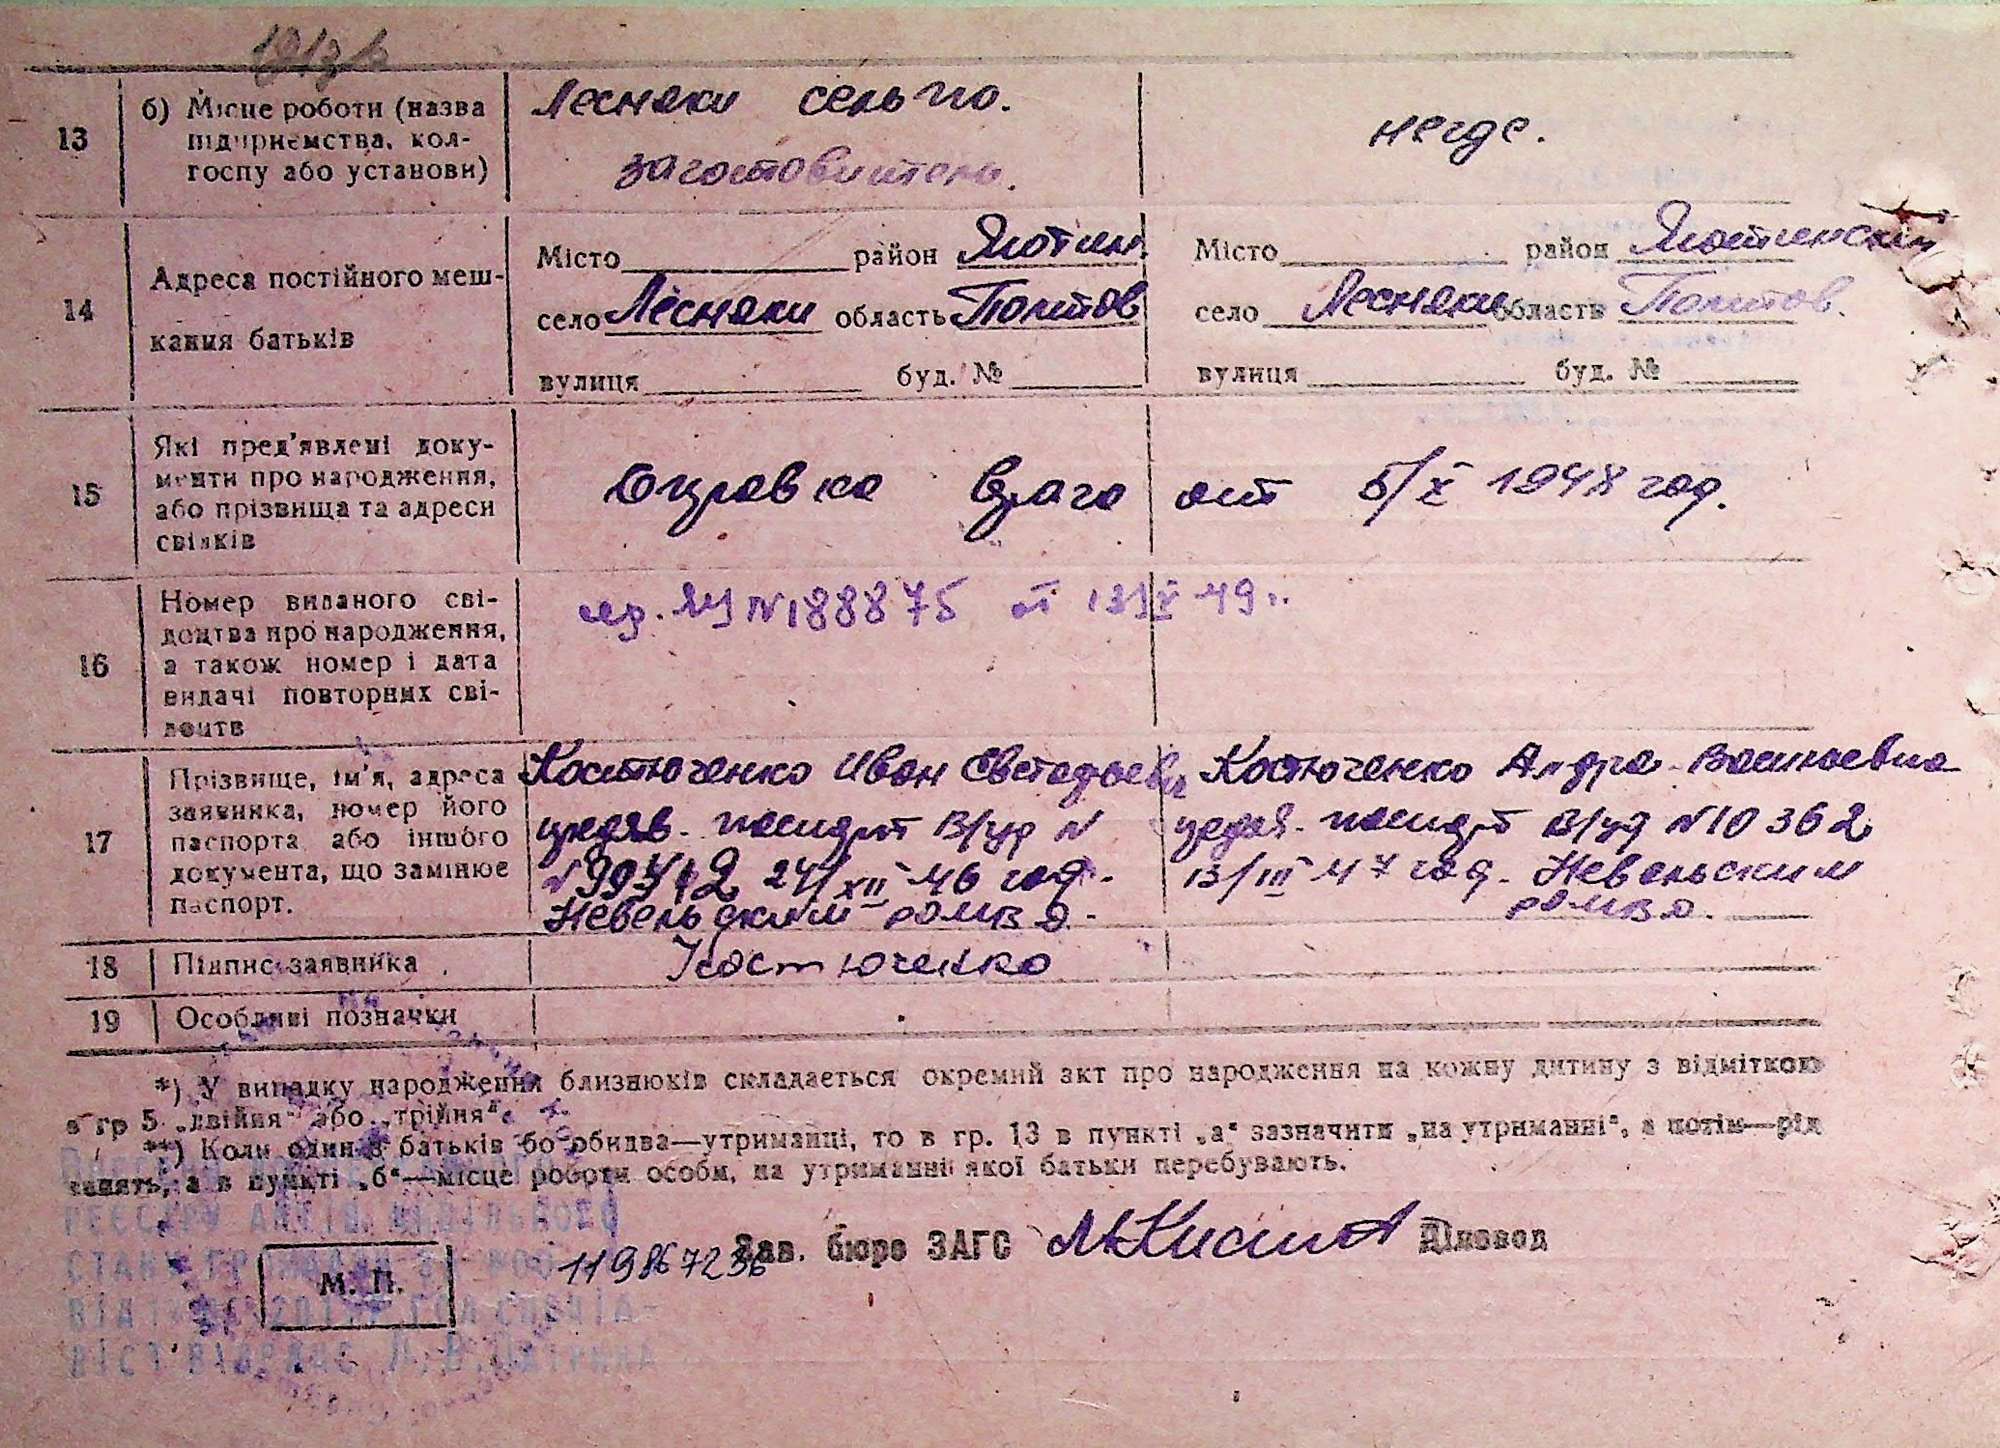 13
б) Місце роботи (назва
підприємства, кол-
госпу або установи)
Лесняки сельпо.
заготовитель.
негде.
14
Адреса постійного меш-
кання батьків
Місто район Яготин.
село Лесняки область Полтов
вулиця буд. №
Місто район Яготинский
село Лесняки область Полтов.
вулиця буд. №
15
Які пред'явлені доку-
менти про народження,
або прізвища та адреси
свідків
Справка врача от 5/X 1948 год.
16
Номер виданого сві-
доцтва про народження,
а також номер і дата
видачі повторних сві-
доцтв
N188875 от 13/X 49 г.
17
Прізвище, ім'я, адреса
заявника, номер його
паспорта або іншого
документа, що замінює
паспорт.
Костюченко Иван
24/XII 46 год.
Невельским
Костюченко Васильевна
N10362
13/III 47 год. Невельским
18
Підпис заявника
Костюченко
19
Особливі позначки
*) У випадку народження близнюків складається окремий акт про народження на кожну дитину з відміткою
в гр 5 „двійня“ або „трійня“.
**) Коли один з батьків бо обидва—утриманці, то в гр. 13 в пункті „а“ зазначити „на утриманні“, а потім—рід
занять, а в пункті „б“—місце роботи особи, на утриманні якої батьки перебувають.
РЕЄСТРУ АКТІВ ЦИВІЛЬНОГО
СТАНУ ГРОМАДЯН
М. П.
119867236
Зав. бюро ЗАГС
Діловод